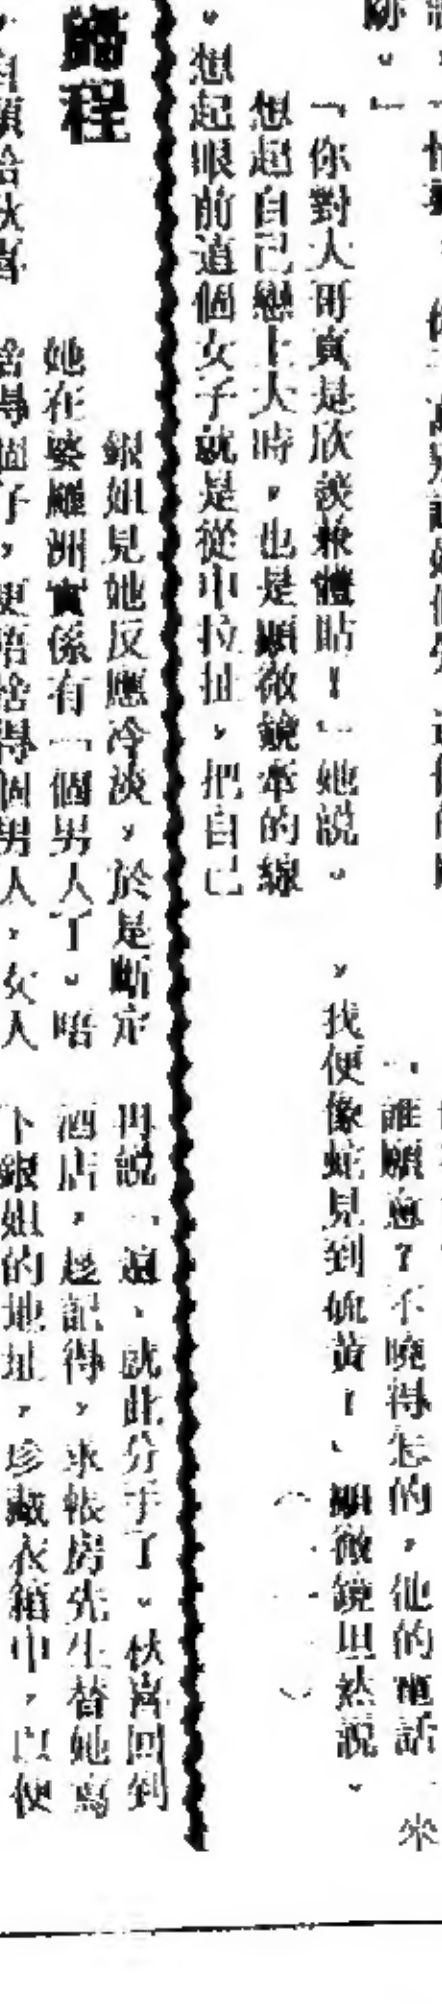 跡。」
「你對大哥真是欣羨兼體貼！」她說。
想起自己戀上大時，也是顯微鏡牽的線
。想起眼前這個女子就是從中拉扯，把自己
「誰願意？不曉得怎的，他的電話一來
，我便像蛇見到硫黃！」顯微鏡坦然說。
歸程
銀姐見她反應冷淡，於是斷定
她在婆羅洲實係有一個男人了。唔
捨得個仔，更唔捨得個男人，女人
再說一遍、就此分手了。秋喜回到
酒店，趁記得，求帳房先生替她寫
下銀姐的地址，珍藏衣箱中，以便